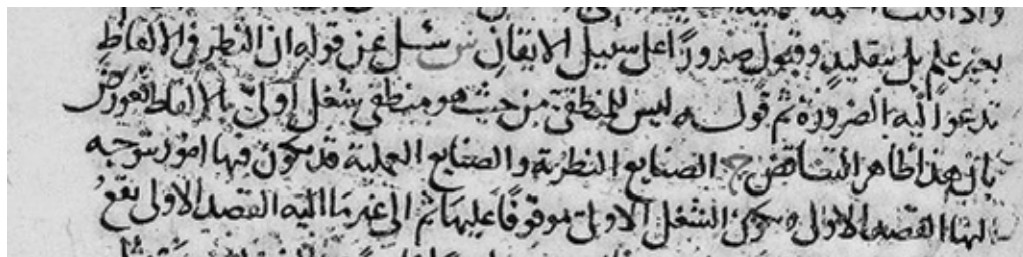 بغير علم بل بتقليد وقبول صدورا على سبيل الايقان س سئل عن قوله ان النظر في الالفاظ
تدعوا اليه الضرورة ثم قوله ليس للمنطقي من حيث هو منطقي شغل اولي بالالفاظ فعورض
بان هذا ظاهر التناقض ج الصنايع النظرية والصنايع العملية قد يكون فيها امور يتوجه
اليها القصد الاول ويكون الشغل الاولي موقوفا عليها ثم الى غير ما اليه القصد الاول يقع